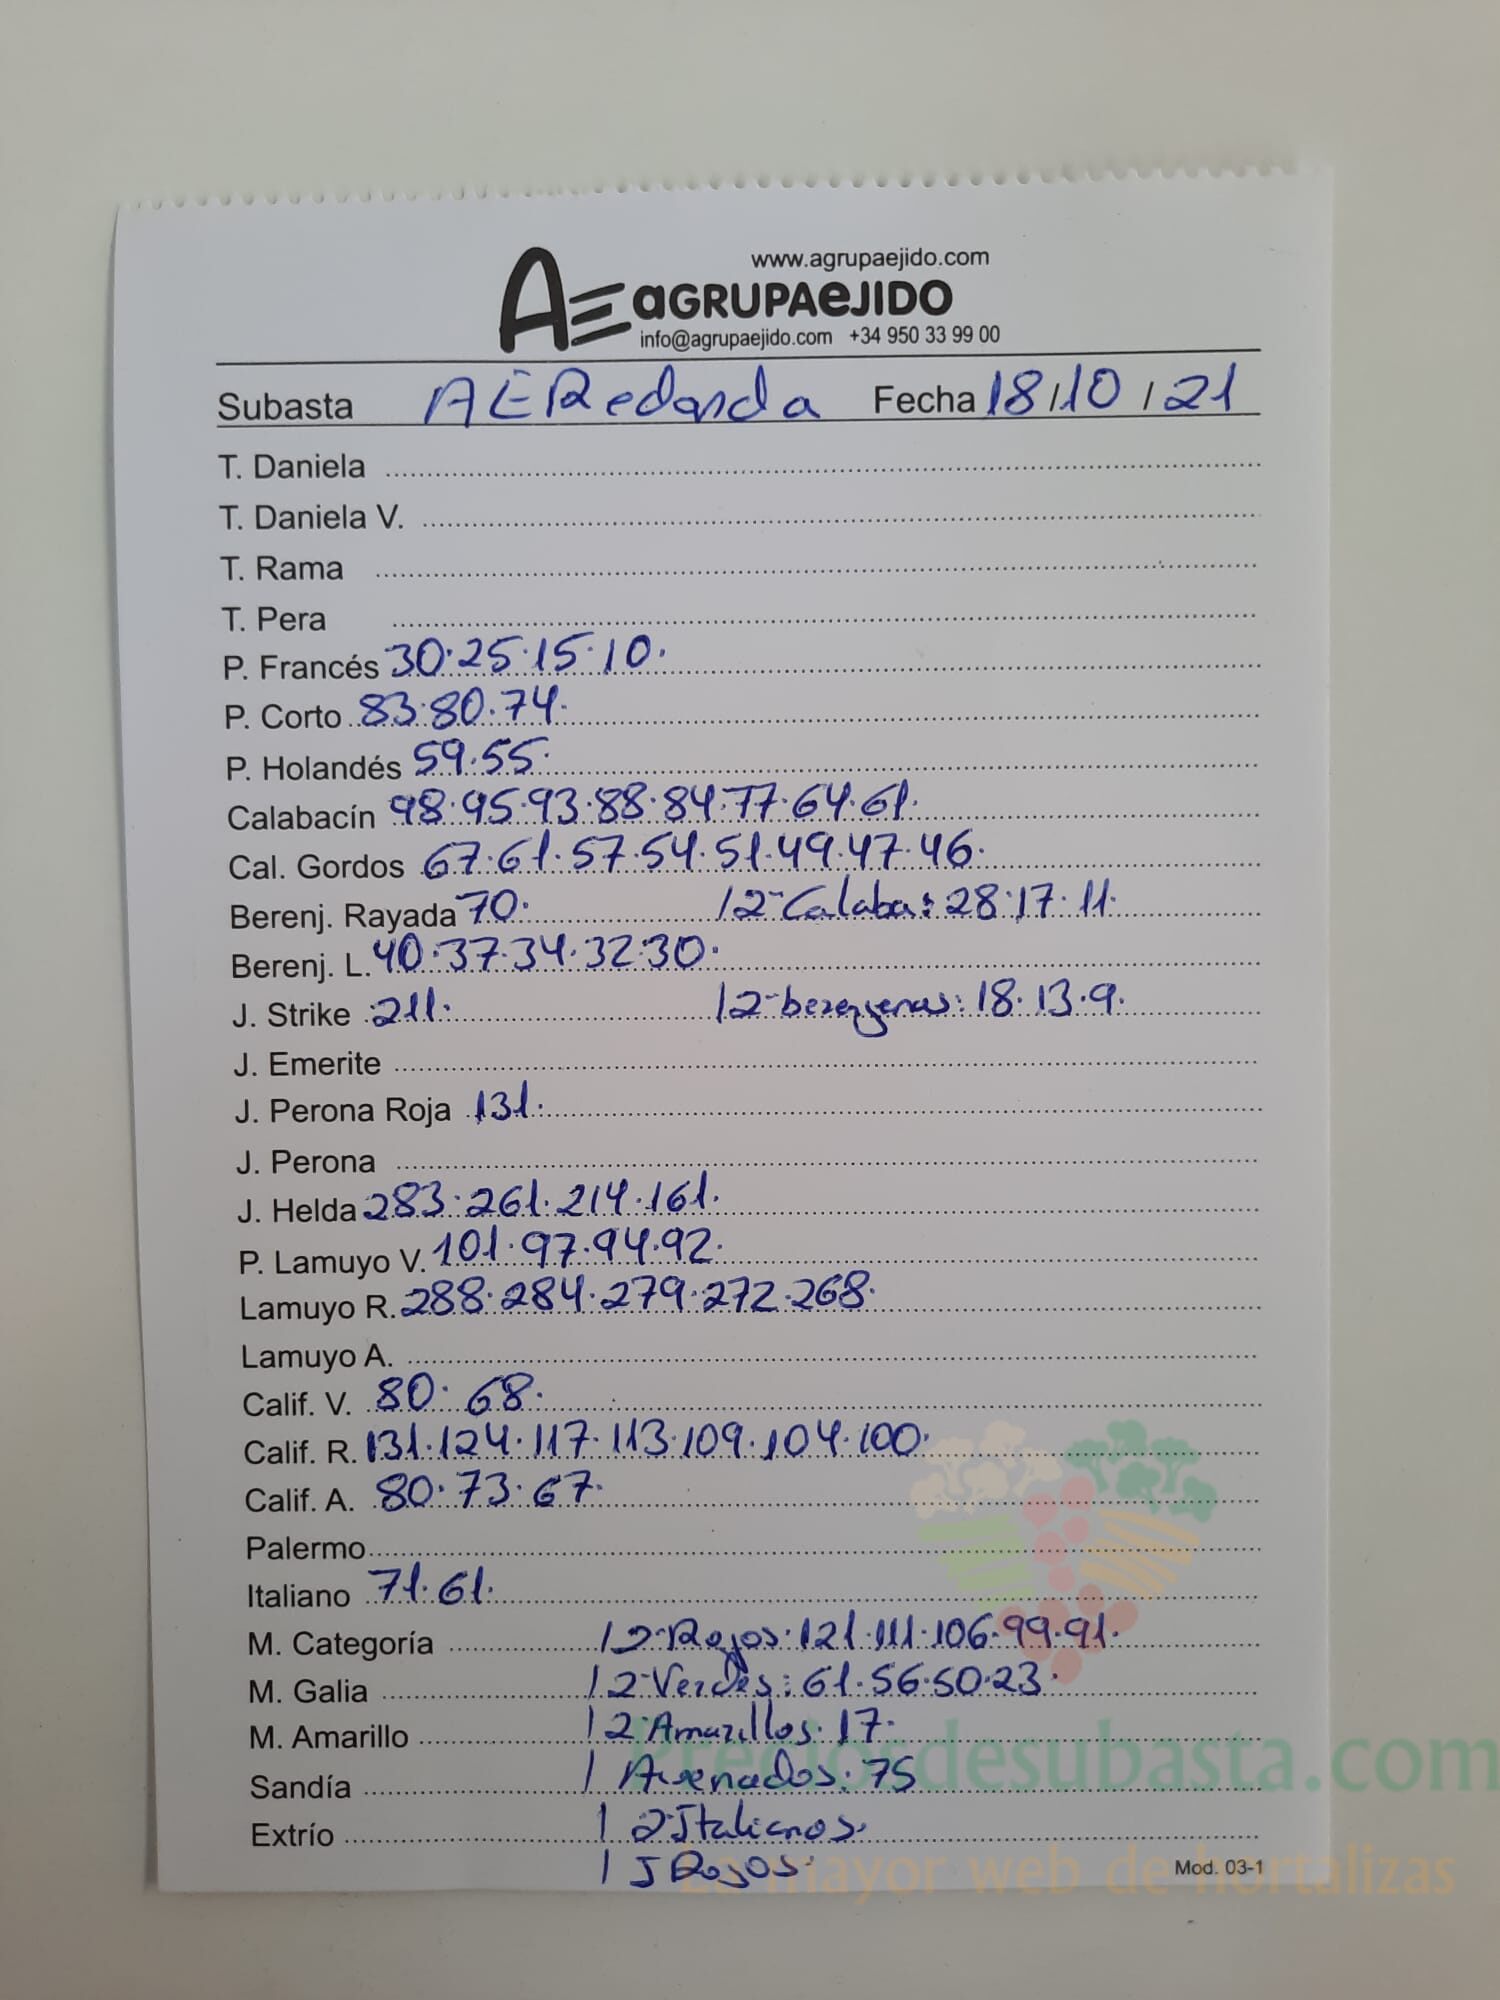 www.agrupaejido.com
AE aGRUPAeJIDO
info@agrupaejido.com +34 950 33 99 00
Subasta AE Redonda Fecha 18/10/21
T. Daniela
T. Daniela V.
T. Rama
T. Pera
P. Francés 30.25.15.10.
P. Corto 83.80.74.
P. Holandés 59.55.
Calabacín 98.95.93.88.84.77.64.61.
Cal. Gordos 67.61.57.54.51.49.47.46.
Berenj. Rayada 70. / 2ª Calaba: 28.17.11.
Berenj. L. 40.37.34.32.30.
J. Strike 211. / 2ª berenjenas: 18.13.9.
J. Emerite
J. Perona Roja 131.
J. Perona
J. Helda 283.261.214.161.
P. Lamuyo V. 101.97.94.92.
Lamuyo R. 288.284.279.272.268.
Lamuyo A.
Calif. V. 80.68.
Calif. R. 131.124.117.113.109.104.100.
Calif. A. 80.73.67.
Palermo
Italiano 71.61.
M. Categoría / 2ª Rojos. 121.111.106.99.91.
M. Galia / 2ª Verdes: 61.56.50.23.
M. Amarillo / 2ª Amarillos. 17.
Sandía / Asenados: 75
Extrío / 2 Italianos.
/ J Rojos.
Mod. 03-1
Preciosdesubasta.com
La mayor web de hortalizas